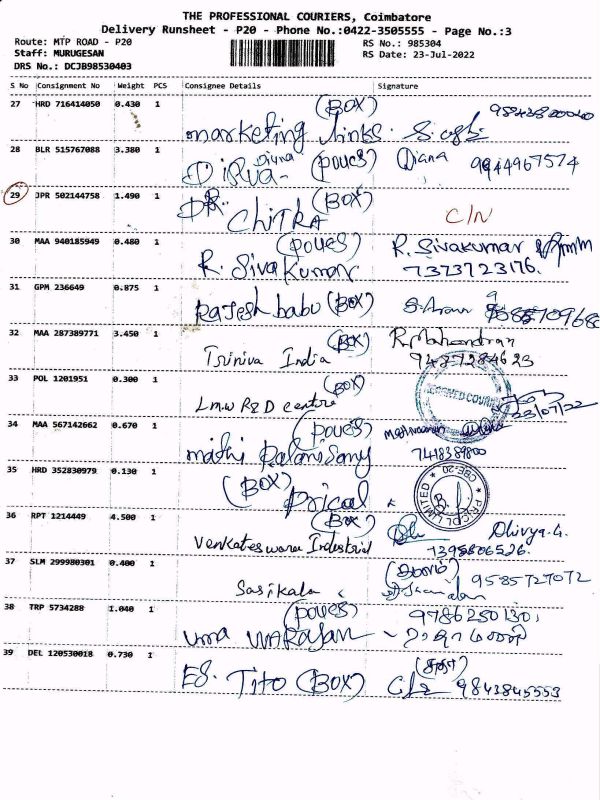 THE PROFESSIONAL COURIERS, Coimbatore
Delivery Runsheet - P20 - Phone No.:0422-3505555 - Page No.:3
Route: MTP ROAD - P20
RS No.: 985304
Staff: MURUGESAN
RS Date: 23-Jul-2022
DRS No.: DCJB98530403
S No Consignment No Weight PCS Consignee Details Signature
27 HRD 716414050 0.430 1 (BOX)
marketing links.
28 BLR 515767088 3.380 1 Diana (poues) Diana 9944967574
29 JPR 502144758 1.490 1 DR. (BOX)
CHITRA C/N
30 MAA 940185949 0.480 1 (poues) R. Sivakumar
R. Sivakumar 7373723176.
31 GPM 236649 0.875 1
Rajesh babu (BOX)
32 MAA 287389771 3.450 1 (BOX) R. Mahendran
Triniva India 9487284623
33 POL 1201951 0.300 1 (BOX)
Lmw R&D centre 23/07/22
34 MAA 567142662 0.670 1 (poues)
mathi Palanisamy 7418389800
35 HRD 352830979 0.130 1 (BOX) Prical
PRICOL LIMITED * CBE-20 *
36 RPT 1214449 4.500 1 (BOX) Dhivya.G.
Venkateswara Industrial 7395806526.
37 SLM 299980301 0.400 1
Sasikala 9585727072
38 TRP 5734288 1.040 1 (poues) 9786250130
uma
39 DEL 120530018 0.730 1
ES. Tito (BOX) 9843845553